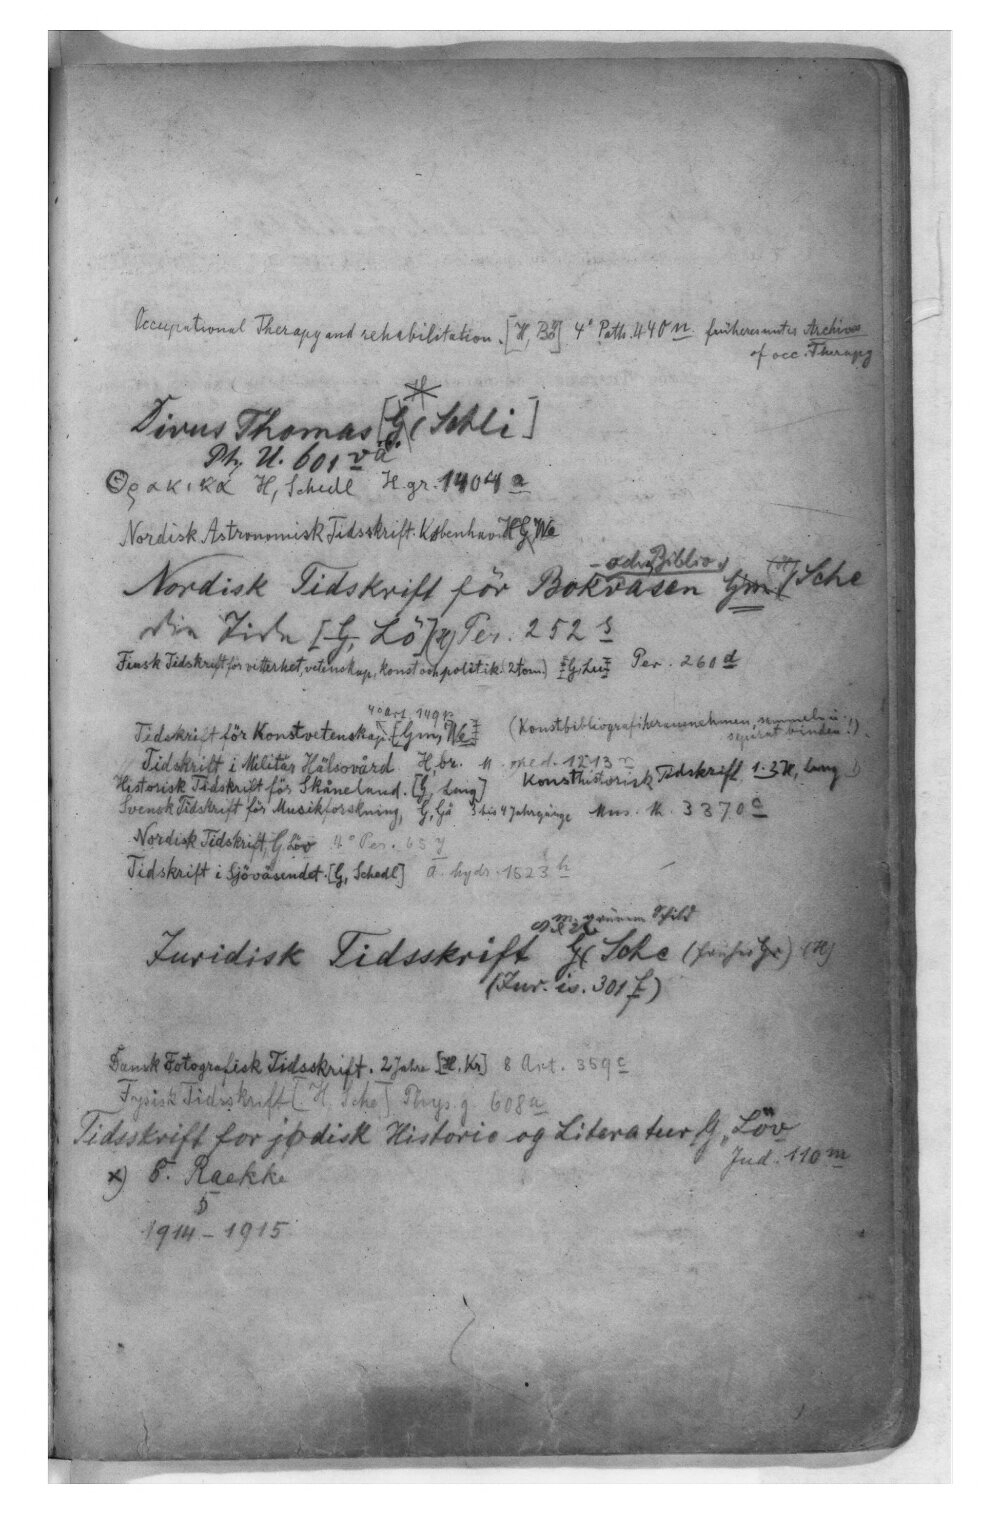 Occupational Therapy and rehabilitation. [H, Bö] 4° Path. 440 n. früheres unter Archives
of occ. Therapy
H
Divus Thomas [G ( Schli ]
Ph. U. 601 vä.
Θρακικά H, Schedl H. gr. 1404 a
Nordisk Astronomisk Tidsskrift. København H G We
- och Biblio
Nordisk Tidskrift för Bokväsen Gm (H) Sche
[G, Lö] (x) Per. 252 s
Finsk Tidskrift för vitterhet, vetenskap, konst och politik. (2 tom.) [G, Lu] Per. 260 d
4° Art. 149 n
Tidskrift för Konstvetenskap. [Gm, We] (Konstbibliografi herausnehmen, sammeln u.
separat binden!)
Tidskrift i Militär Hälsovård H, br. M. med. 1213 n
Historisk Tidskrift för Skåneland. [G, Lang] Konsthistorisk Tidskrift 1.-3 H, Lang
Svensk Tidskrift för Musikforskning, G, Gä 3 bis 4 Jahrgänge Mus. th. 3370 c
Nordisk Tidskrift, G Löv 4° Per. 65 y
Tidskrift i Sjöväsendet. [G, Schedl] A. hydr. 1523 h
mit grünem Schild
Juridisk Tidsskrift G ( Sche (früher Gr) (H)
(Jur. is. 301 f)
Dansk Fotografisk Tidsskrift. 2 Jahre [H. Kr] 8 Art. 359 c
Fysisk Tidsskrift [H, Sche] Phys. g. 608 a
Tidsskrift for jødisk Historie og Literatur G, Löv
Jud. 110 m
x) 5. Raekke
5
1914 – 1915